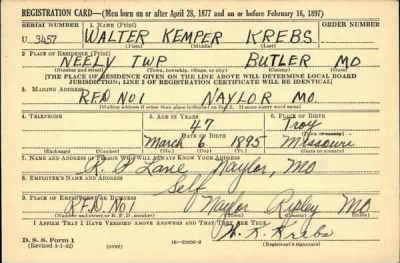 REGISTRATION CARD—(Men born on or after April 28, 1877 and on or before February 16, 1897)
SERIAL NUMBER 1. NAME (Print) ORDER NUMBER
U 3457 WALTER KEMPER KREBS
(First) (Middle) (Last)
2. PLACE OF RESIDENCE (Print)
NEELY TWP BUTLER MO
(Number and street) (Town, township, village, or city) (County) (State)
[THE PLACE OF RESIDENCE GIVEN ON THE LINE ABOVE WILL DETERMINE LOCAL BOARD
JURISDICTION; LINE 2 OF REGISTRATION CERTIFICATE WILL BE IDENTICAL]
3. MAILING ADDRESS
R.F.D. NO1 NAYLOR MO.
[Mailing address if other than place indicated on line 2. If same insert word same]
4. TELEPHONE 5. AGE IN YEARS 6. PLACE OF BIRTH
47 Troy
DATE OF BIRTH (Town or county)
March 6 1895 Missouri
(Exchange) (Number) (Mo.) (Day) (Yr.) (State or country)
7. NAME AND ADDRESS OF PERSON WHO WILL ALWAYS KNOW YOUR ADDRESS
Lane Naylor, MO
8. EMPLOYER'S NAME AND ADDRESS
Self
9. PLACE OF EMPLOYMENT OR BUSINESS
R.F.D. NO1 Naylor Ripley MO
(Number and street or R. F. D. number) (Town) (County) (State)
I AFFIRM THAT I HAVE VERIFIED ABOVE ANSWERS AND THAT THEY ARE TRUE.
D. S. S. Form 1
(Revised 4-1-42) (over) W. K. Krebs
(Registrant's signature)